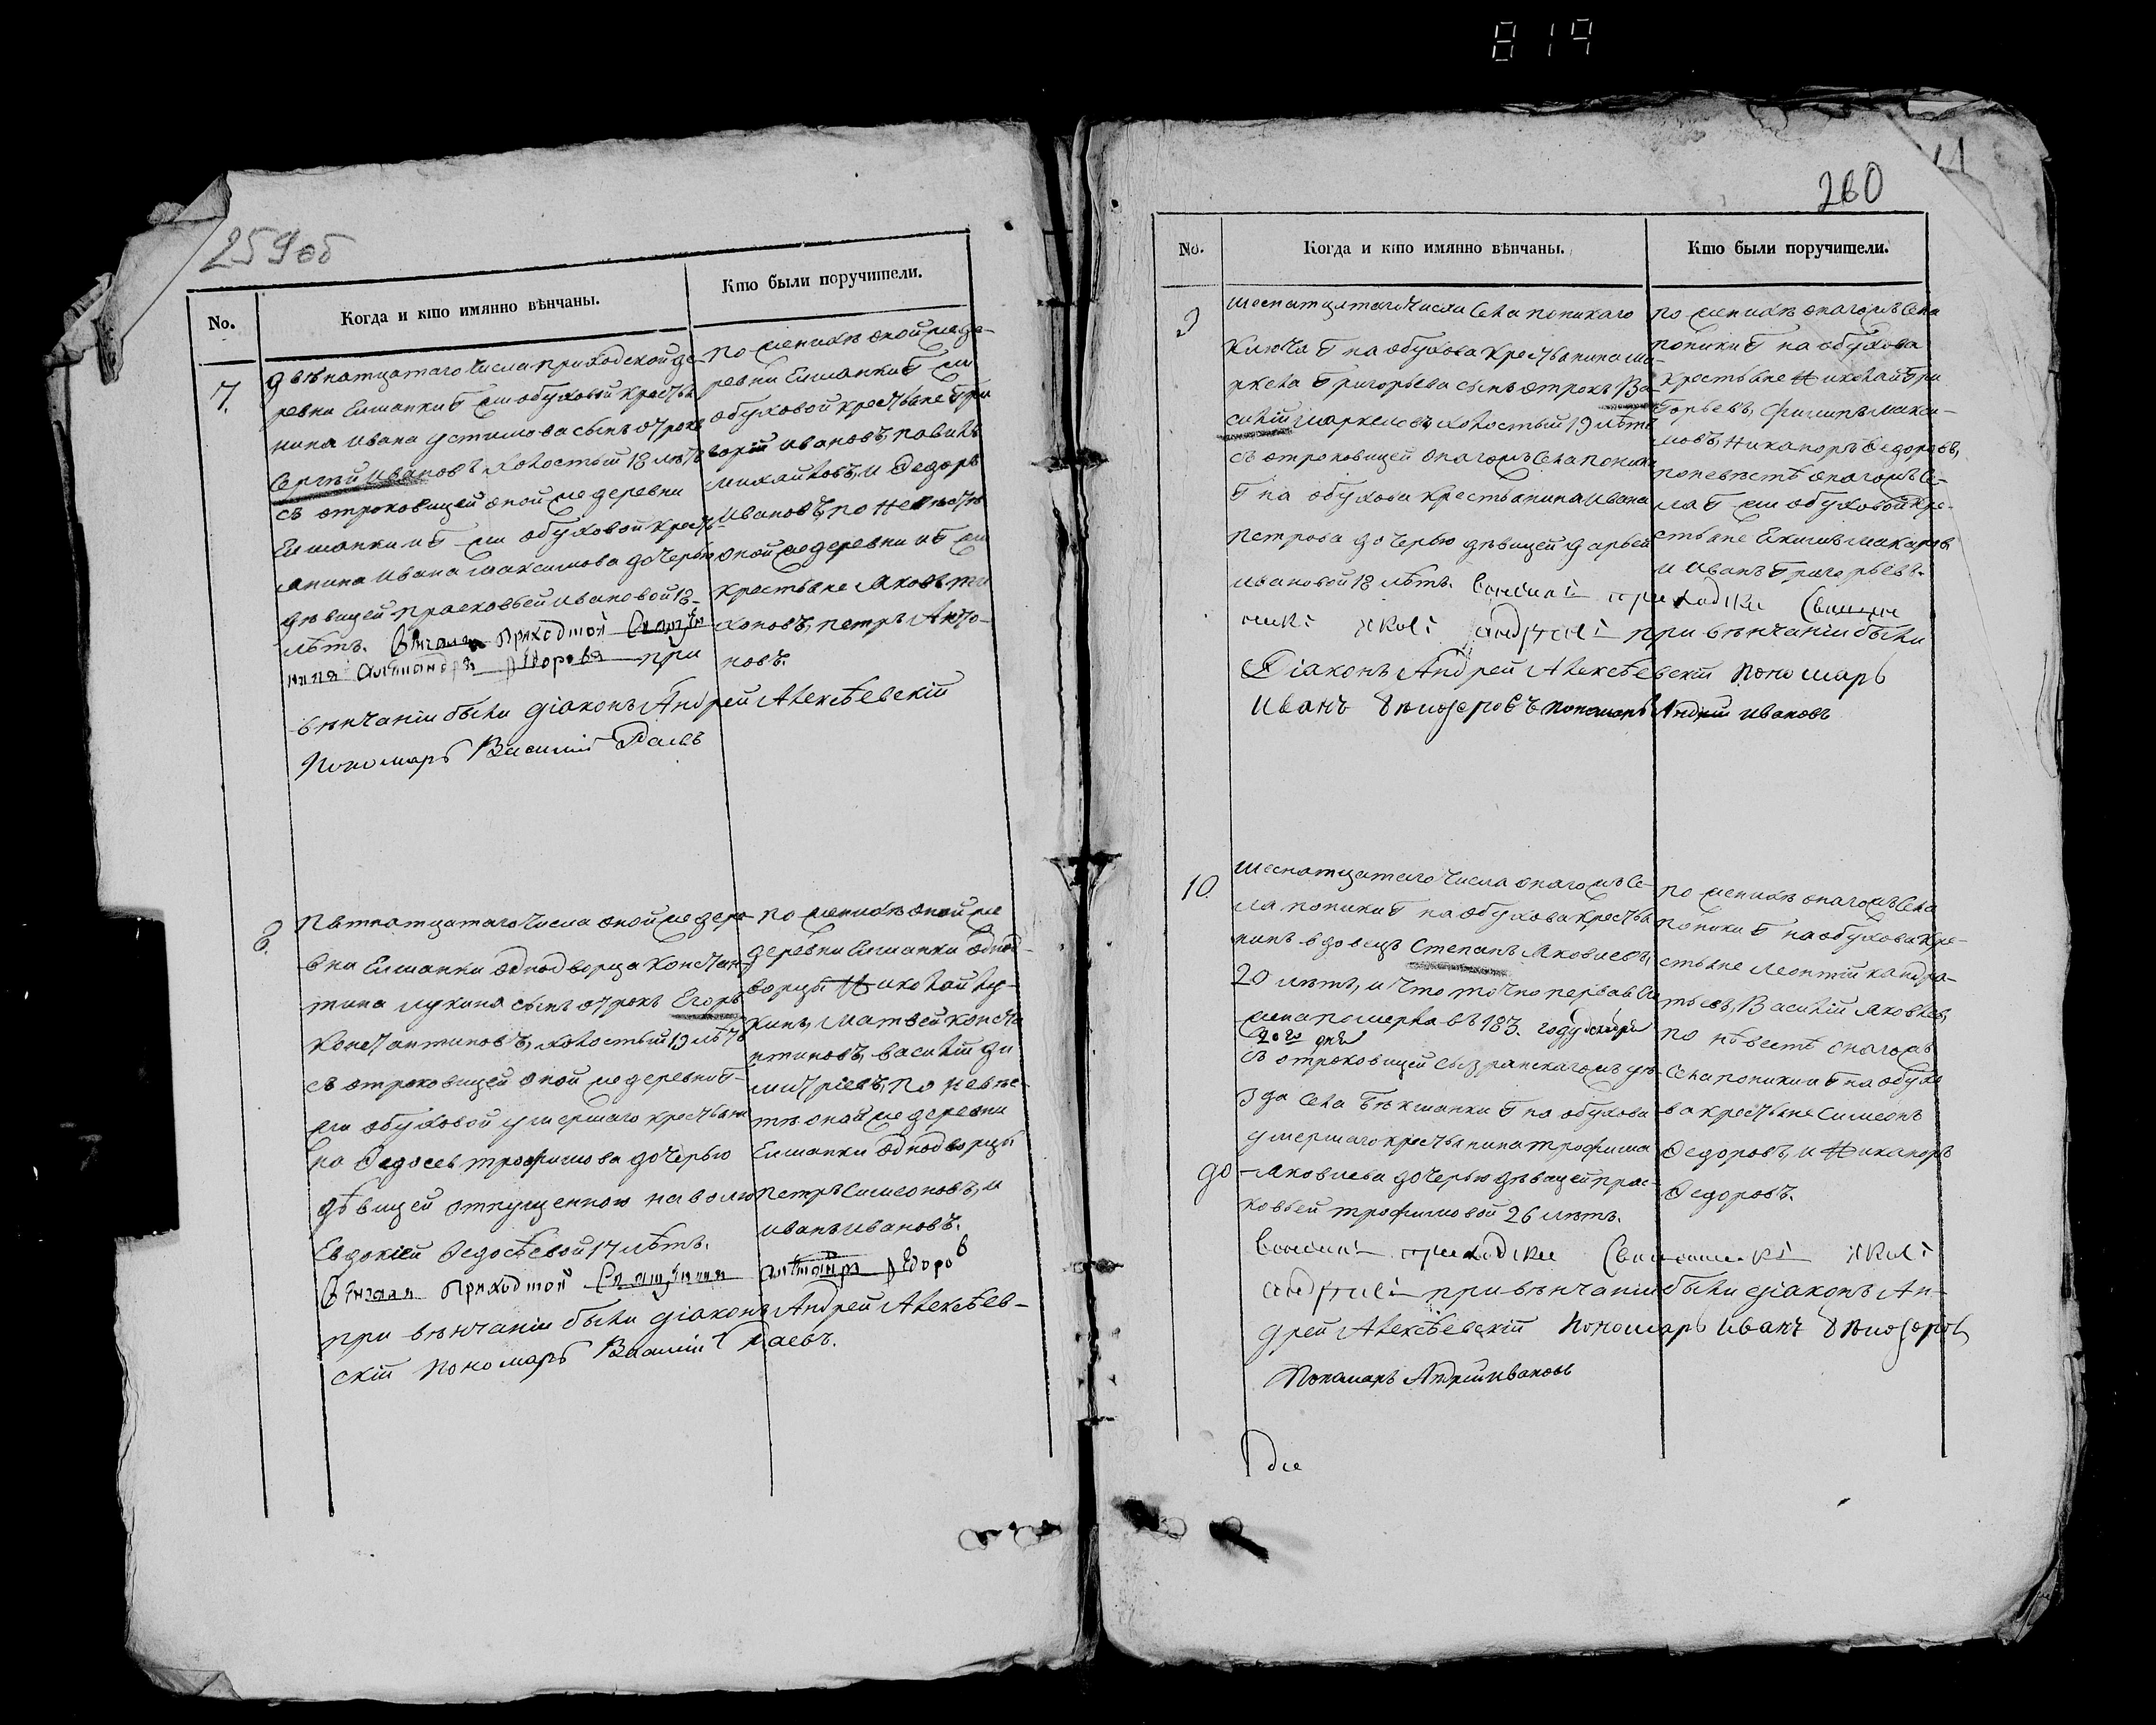 819
259об
No.
Когда и кто имянно вѣнчаны.
Кто были поручители.
7.
двѣнатцатаго числа приходской де-
ревни Елшанки Г ---жи обуховой крестья
нина ивана устимова сынъ отрокъ
Сергѣй ивановъ холостый 18 лѣтъ
съ отроковицей оной же деревни
Елшанки Г---жи обуховой кресть-
янина ивана максимова дочерью
дѣвицей прасковьей ивановой 18
лѣтъ. Вѣнчалъ Приходской Священ
никъ Александръ Ѳедоровъ при
вѣнчаніи были діаконъ Андрей Алексѣевскій
Пономарь Василий
по женихѣ оной же де-
ревни Елшанки Г---жи
обуховой крестьяне Гри
горій ивановъ, павилъ
михайловъ, и Ѳедоръ
ивановъ, по невѣстѣ
оной же деревни и Г---жи
крестьяне Яковъ ти
хоновъ, петръ Анто-
новъ.
8.
Пятнатцатаго числа оной же дере
вни Елшанки однодворца Констан-
тина лукина сынъ отрокъ Егоръ
Константиновъ, холостый 19 лѣтъ
съ отроковицей оной же деревни Г-
жи обуховой умершаго крестьяни
на Ѳедосея трофимова дочерью
дѣвицей отпущенною на волю
Евдокіей Ѳедосѣевой 17 лѣтъ.
Вѣнчалъ Приходской Священникъ Александръ Ѳедоровъ
при вѣнчаніи были діаконъ Андрей Алексѣев-
скій Пономарь Василий
по женихѣ оной же
деревни Елшанки однод-
ворцы Николай лу-
кинъ, матвей конста
нтиновъ, василій ди
митріевъ, по невѣс-
тѣ оной же деревни
Елшанки однодворцы
петръ симеоновъ, и
иванъ ивановъ.
260
No.
Когда и кто имянно вѣнчаны.
Кто были поручители.
9
шеснатцатаго числа села поникаго
ключа Г---на обухова крестьянина ма-
ркела Григорьева сынъ отрокъ Ва-
силій маркеловъ холостый 19 лѣтъ
съ отроковицей онагожъ села поники
Г---на обухова крестьянина ивана
петрова дочерью дѣвицей дарьей
ивановой 18 лѣтъ.
при вѣнчаніи были
Діаконъ Андрей Алексѣевскій Пономарь
Иванъ пономарь Андрей ивановъ
по женихѣ онагожъ села
поники Г---на обухова
крестьяне Николай Гри
горьевъ, филипъ макси-
мовъ, Никаноръ Ѳедоровъ,
по невѣстѣ онагожъ се-
ла Г---жи обуховой кре-
стьяне Екимъ макаровъ
и иванъ Григорьевъ.
10.
шеснатцатаго числа онагожъ се-
ла поники Г---на обухова крестья
нинъ вдовецъ Степанъ Яковлевъ,
20 лѣтъ, и что точно первая его
жена померла въ 183. году
20го дня
съ отроковицей сызранскагожъ уѣ-
зда села Бѣкшанки Г---на обухова
умершаго крестьянина трофима
Яковлева дочерью дѣвицей прас-
ковьей трофимовой 26 лѣтъ.
при вѣнчаніи были діаконъ Ан-
дрей Алексѣевскій Пономарь Иванъ
Пономарь Андрей ивановъ
по женихѣ онагожъ села
поники Г---на обухова кре-
стьяне леонтій кондра-
тьевъ, Василій Яковлевъ,
по нѣвестѣ онагожъ
села поники Г---на обухо
ва крестьяне симеонъ
Ѳедоровъ, и Никаноръ
Ѳедоровъ.